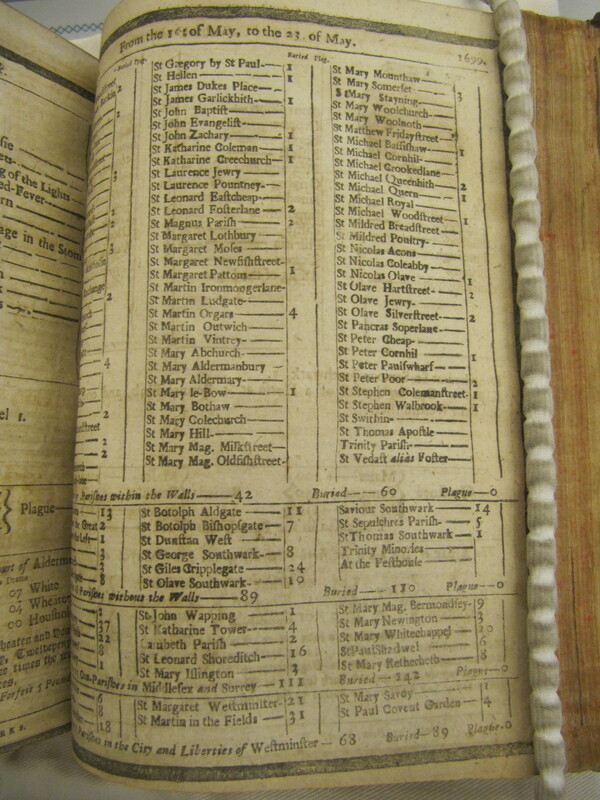 From the 16 of May, to the 23. of May. 1699.
Buried Plag.
St Gregory by St Paul 1
St Hellen 1
St James Dukes Place
St James Garlickhith 1
St John Baptiſt
St John Evangeliſt
St John Zachary 1
St Katharine Coleman 1
St Katharine Creechurch 1
St Laurence Jewry
St Laurence Pountney
St Leonard Eaſtcheap
St Leonard Foſterlane 2
St Magnus Pariſh 2
St Margaret Lothbury
St Margaret Moſes
St Margaret Newfiſhſtreet
St Margaret Pattons 1
St Martin Ironmongerlane
St Martin Ludgate
St Martin Orgars 4
St Martin Outwich
St Martin Vintrey
St Mary Abchurch
St Mary Aldermanbury
St Mary Aldermary
St Mary le-Bow 1
St Mary Bothaw
St Mary Colechurch
St Mary Hill
St Mary Mag. Milkſtreet
St Mary Mag. Oldfiſhſtreet
Buried Plag.
St Mary Mounthaw
St Mary Somerſet 3
St Mary Stayning
St Mary Woolchurch
St Mary Woolnoth
St Matthew Fridayſtreet
St Michael Baſſiſhaw
St Michael Cornhil 1
St Michael Crookedlane
St Michael Queenhith
St Michael Quern 2
St Michael Royal 1
St Michael Woodſtreet
St Mildred Breadſtreet 1
St Mildred Poultry
St Nicolas Acons
St Nicolas Coleabby
St Nicolas Olave
St Olave Hartſtreet 1
St Olave Jewry 2
St Olave Silverſtreet
St Pancras Soperlane 2
St Peter Cheap
St Peter Cornhil
St Peter Paulſwharf 1
St Peter Poor
St Stephen Colemanſtreet 1
St Stephen Walbrook 1
St Swithin
St Thomas Apoſtle
Trinity Pariſh
St Vedaſt alias Foſter
Pariſhes within the Walls 42 Buried 60 Plague 0
St Botolph Aldgate 11
St Botolph Biſhopſgate 7
St Dunſtan Weſt
St George Southwark 8
St Giles Cripplegate 24
St Olave Southwark 10
Saviour Southwark 14
St Sepulchres Pariſh 5
St Thomas Southwark 1
Trinity Minories
At the Peſthouſe
Pariſhes without the Walls 89 Buried 110 Plague 0
St John Wapping 1
St Katharine Tower 4
Lambeth Pariſh 2
St Leonard Shoreditch 16
St Mary Iſlington 3
St Mary Mag. Bermondſey 9
St Mary Newington 3
St Mary Whitechappel 20
St Paul Shadwel 6
St Mary Retherheth 8
Out-Pariſhes in Middleſex and Surrey 111 Buried 242 Plague 0
St Margaret Weſtminſter 21
St Martin in the Fields 31
St Mary Savoy 1
St Paul Covent Garden 4
Pariſhes in the City and Liberties of Weſtminſter 68 Buried 89 Plague 0